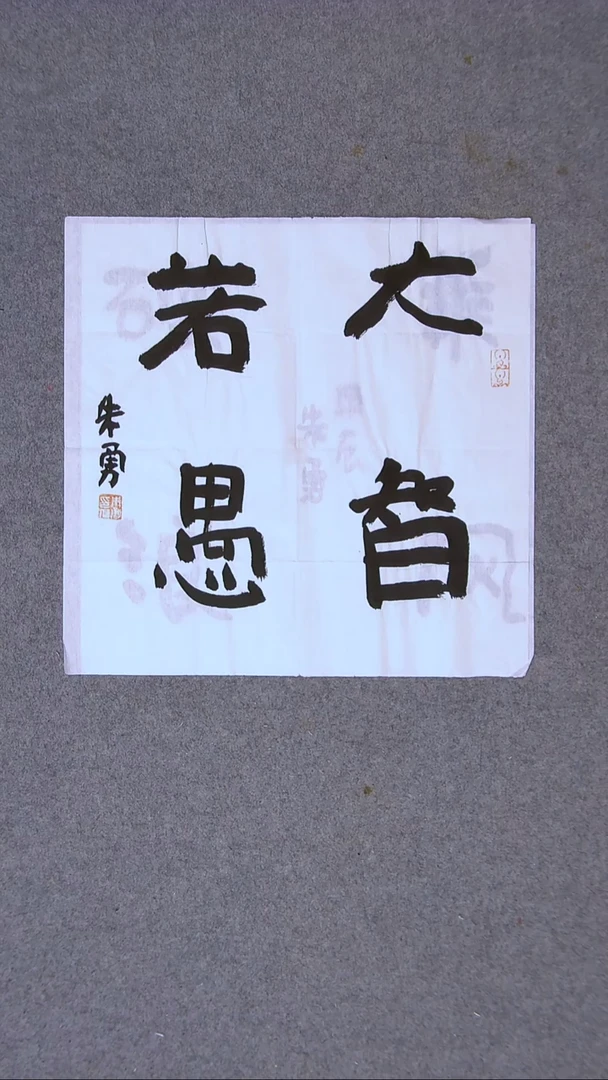 大智
若愚
朱勇